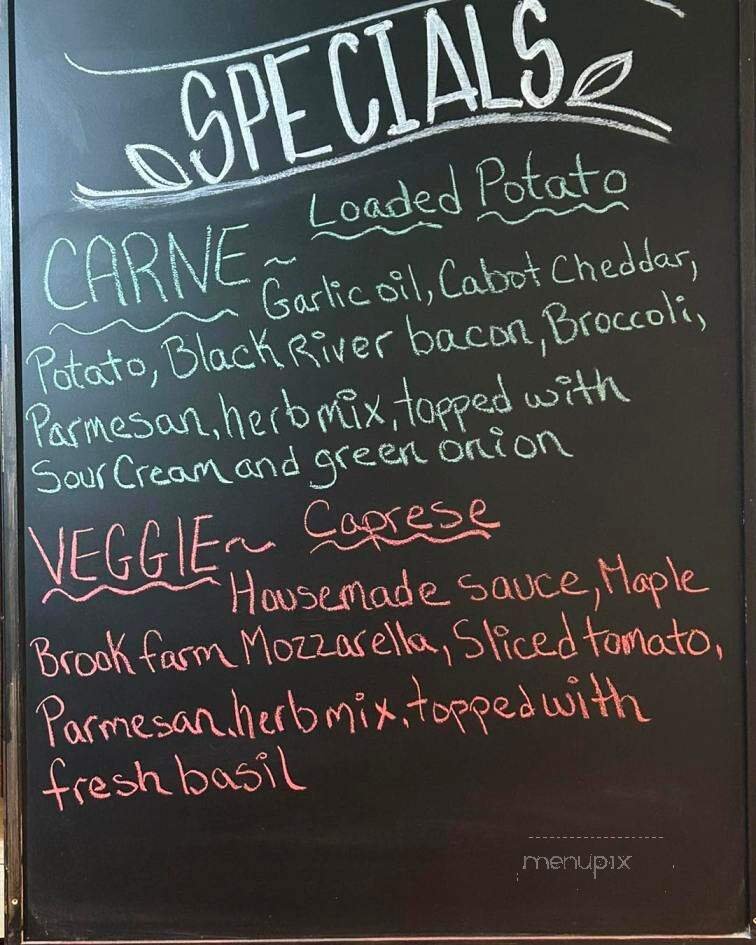 SPECIALS
CARNE ~ Loaded Potato
Garlic oil, Cabot Cheddar,
Potato, Black River bacon, Broccoli,
Parmesan, herb mix, topped with
Sour Cream and green onion
VEGGIE ~ Caprese
Housemade sauce, Maple
Brook farm Mozzarella, Sliced tomato,
Parmesan, herb mix, topped with
fresh basil
menupix